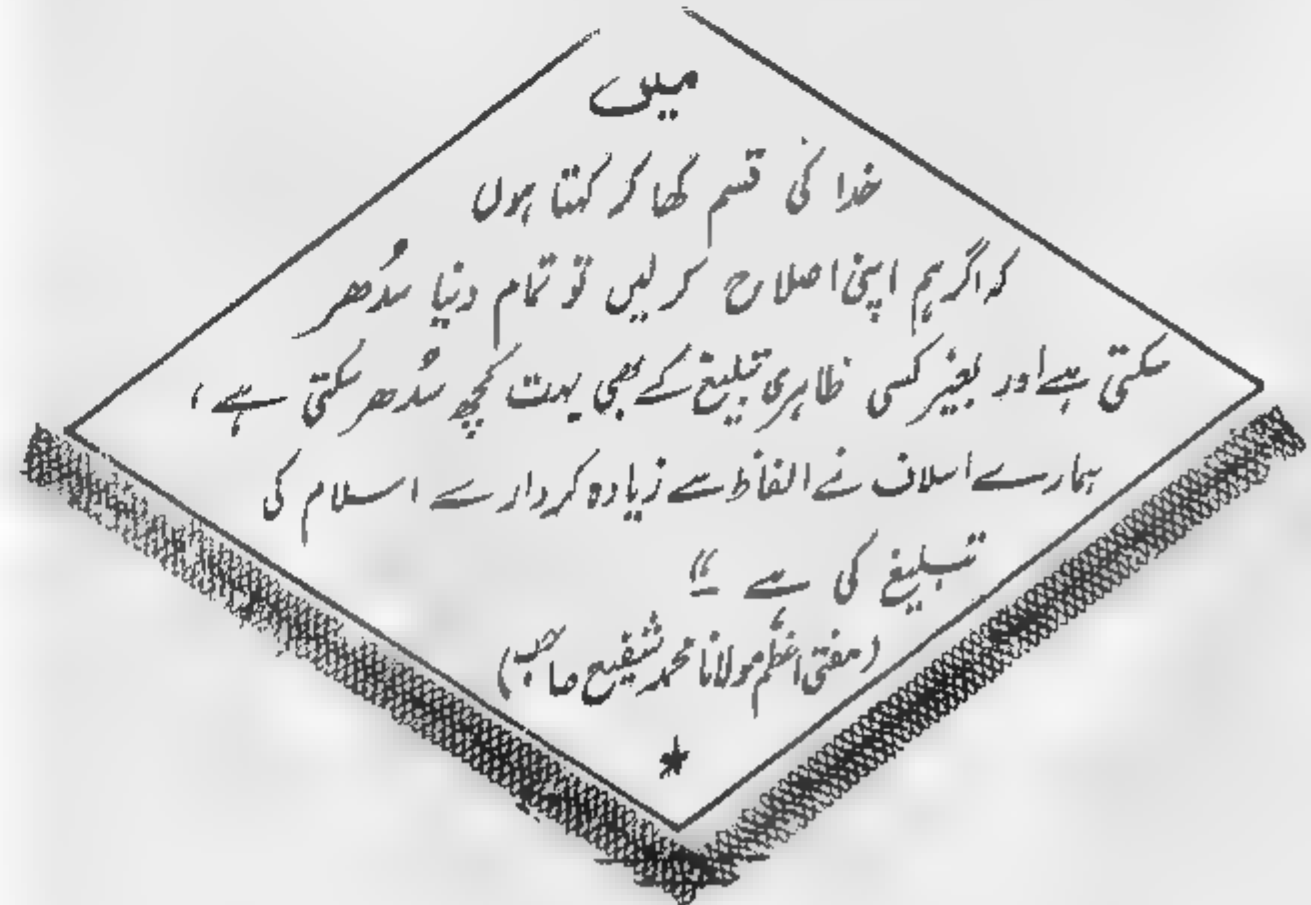 میں
خدا کی قسم کھا کر کہتا ہوں
کہ اگر ہم اپنی اصلاح کر لیں تو تمام دنیا سُدھر
سکتی ہے اور بغیر کسی ظاہری تبلیغ کے بھی بہت کچھ سُدھر سکتی ہے ،
ہمارے اسلاف نے الفاظ سے زیادہ کردار سے اسلام کی
تبلیغ کی ہے ۔"
(مفتی اعظم مولانا محمد شفیع صاحب)
*